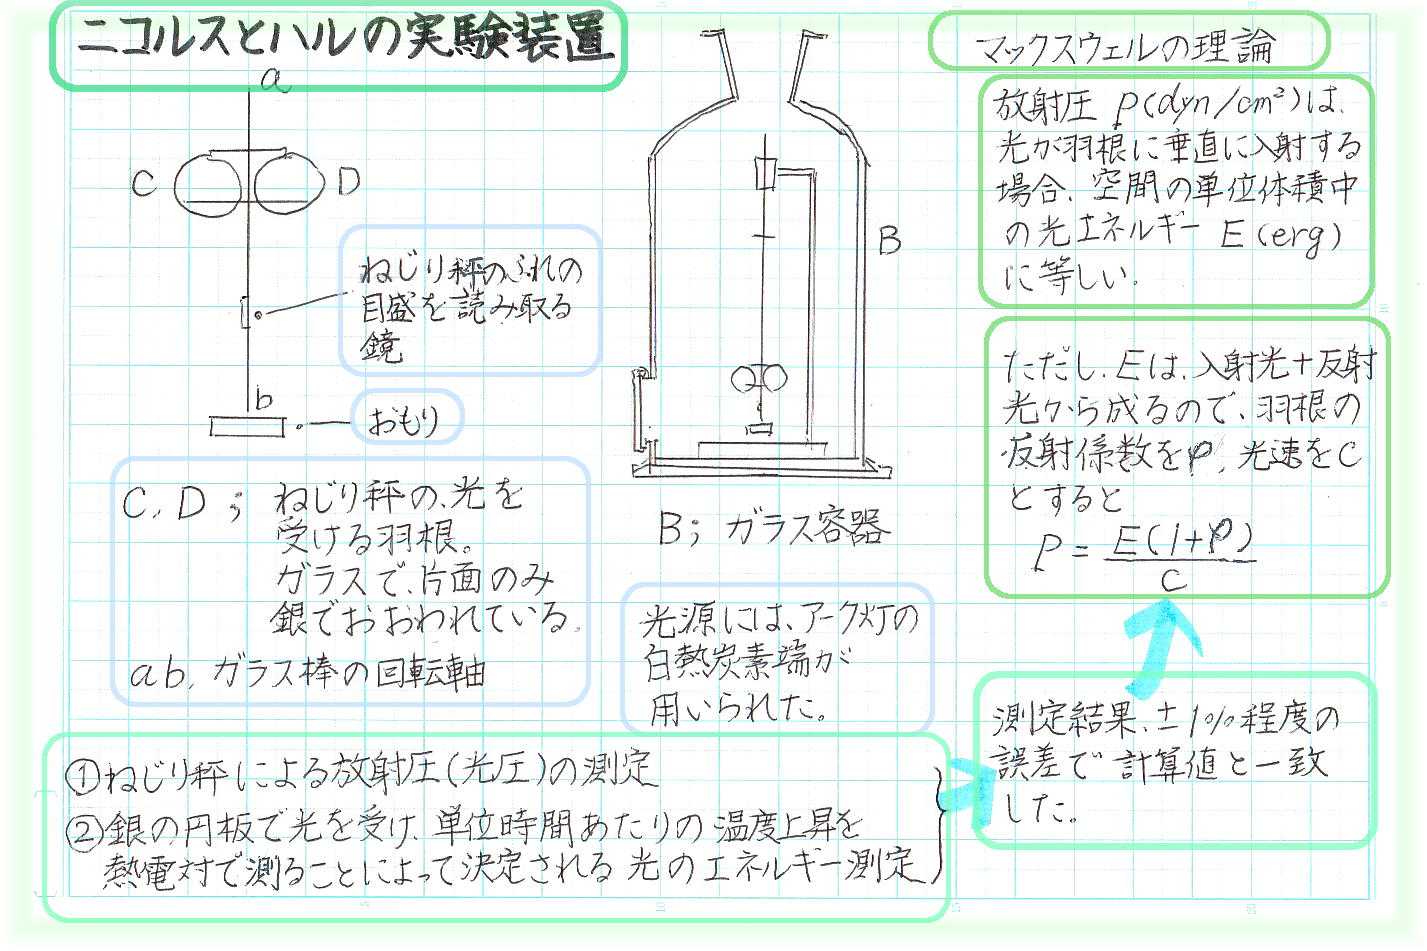 ニコルスとハルの実験装置
a
C
D
ねじり秤のふれの
目盛を読み取る
鏡
b
おもり
C, D ; ねじり秤の、光を
受ける羽根。
ガラスで、片面のみ
銀でおおわれている。
ab, ガラス棒の回転軸
B
B ; ガラス容器
光源には、アーク灯の
白熱炭素端が
用いられた。
マックスウェルの理論
放射圧 P(dyn/cm²)は、
光が羽根に垂直に入射する
場合、空間の単位体積中
の光エネルギー E(erg)
に等しい。
ただし、Eは、入射光+反射
光から成るので、羽根の
反射係数をρ, 光速をC
とすると
P = E(1+ρ) / C
①ねじり秤による放射圧(光圧)の測定
②銀の円板で光を受け、単位時間あたりの温度上昇を
熱電対で測ることによって決定される光のエネルギー測定
測定結果、±1%程度の
誤差で計算値と一致
した。